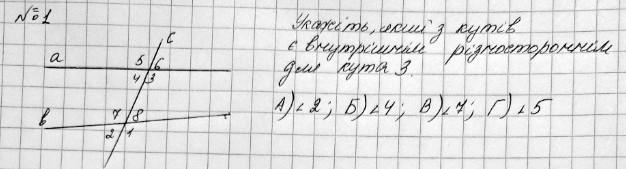 № 1
Укажіть, який з кутів
є внутрішнім різностороннім
для кута 3.
А) ∠2; Б) ∠4; В) ∠7; Г) ∠5
c
a
5 6
4 3
7 8
в
2 1